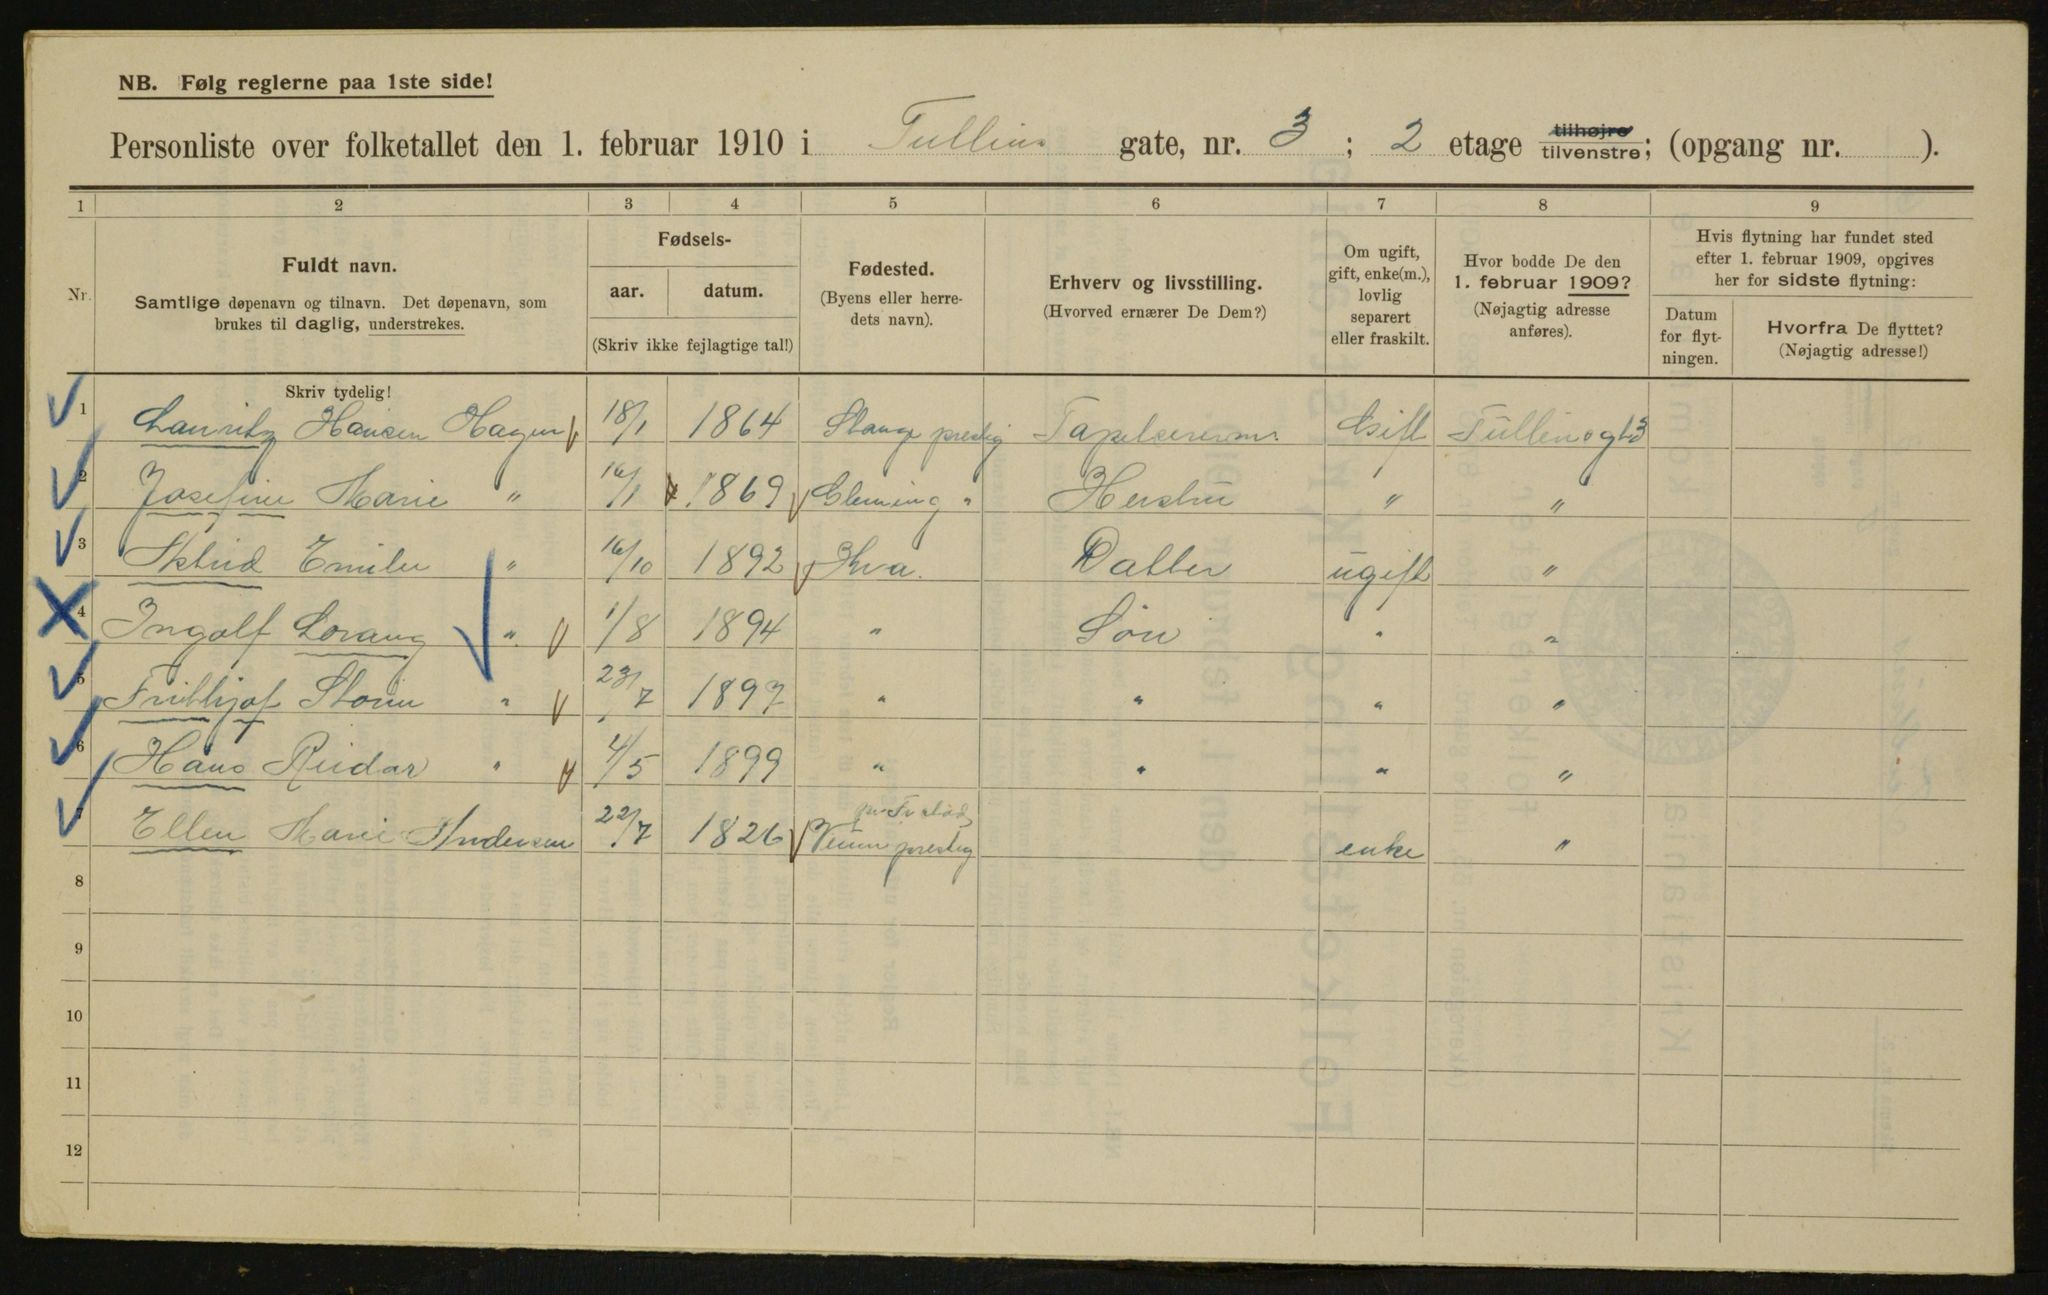 NB. Følg reglerne paa 1ste side!
Personliste over folketallet den 1. februar 1910 i Tullins gate, nr. 3 ; 2 etage tilhøjre tilvenstre; (opgang nr. ).
1 2 3 4 5 6 7 8 9
Nr.
Fuldt navn.
Samtlige døpenavn og tilnavn. Det døpenavn, som
brukes til daglig, understrekes.
Fødsels-
aar. datum.
(Skriv ikke fejlagtige tal!)
Fødested.
(Byens eller herre-
dets navn).
Erhverv og livsstilling.
(Hvorved ernærer De Dem?)
Om ugift,
gift, enke(m.),
lovlig
separert
eller fraskilt.
Hvor bodde De den
1. februar 1909?
(Nøjagtig adresse
anføres).
Hvis flytning har fundet sted
efter 1. februar 1909, opgives
her for sidste flytning:
Datum
for flyt-
ningen.
Hvorfra De flyttet?
(Nøjagtig adresse!)
Skriv tydelig!
1 Lauritz Hansen Hagen 18/1 1864 Stange prestg Gift Tullinsgt 3
2 Josefine Marie " 16/1 1869 Glemming " " "
3 Astrid Emilie " 16/10 1892 Kra. Datter ugift "
4 Ingolf Lorang " 1/8 1894 " Søn " "
5 Frithjof Storm " 23/7 1897 " " " "
6 Hans Reidar " 4/5 1899 " " " "
7 Ellen Marie Andersen 22/7 1826 prestg enke "
8
9
10
11
12